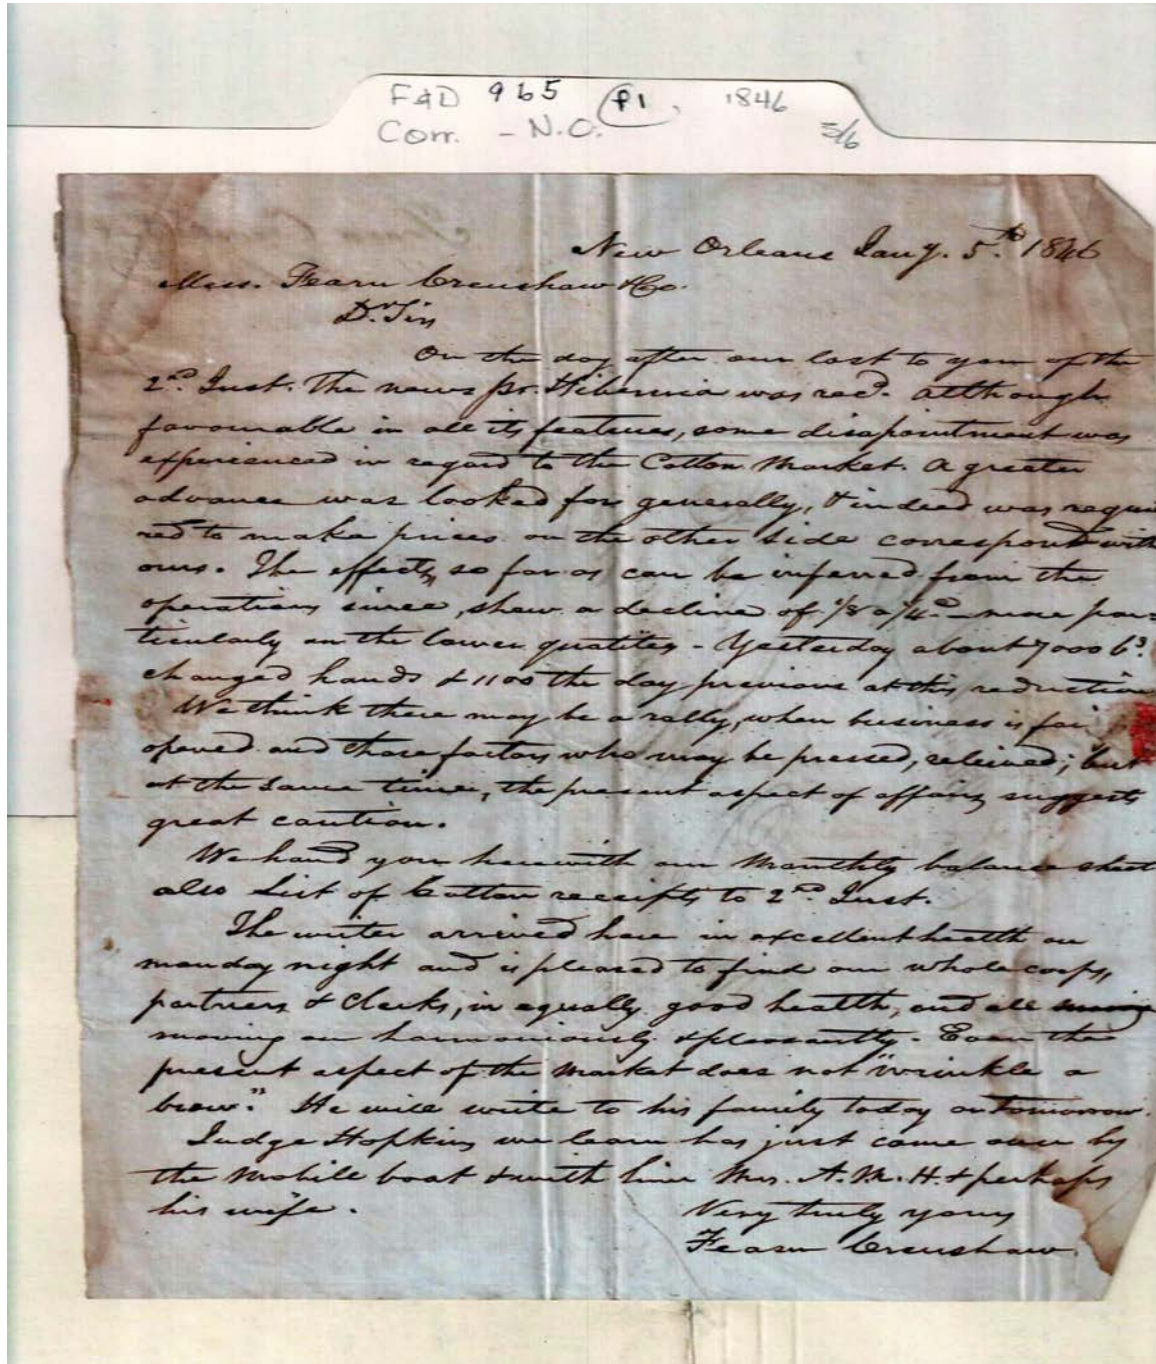 F&D 965 P1, 1846
Corr. - N.O. 3/6
New Orleans Jany. 5th 1846
Mess. Fearn Crenshaw & Co.
Dr. Sirs
On the day after our last to you of the
2nd Inst. The news pr. Hibernia was recd. although
favourable in all its features, some disapointment was
experienced in regard to the Cotton Market. A greater
advance was looked for generally, & indeed was requi
red to make prices on the other side correspond with
ours. The effects, so far as can be inferred from the
operations since, shew a decline of 1/8 a 1/4d - more par=
ticularly on the lower qualities - Yesterday about 7000 bs.
changed hands & 1100 the day previous at this reduction
We think there may be a rally, when business is fai
opened and those factors who may be pressed, relieved; but
at the same time, the present aspect of affairs suggests
great caution.
We hand you herewith our Monthly balance sheet
also List of Cotton receipts to 2nd Inst.
The writer arrived here in excellent health on
monday night and is pleased to find our whole corps,
partners & Clerks, in equally good health, and all
moving on harmoniously & pleasantly. Even the
present aspect of the market does not "wrinkle a
brow." He will write to his family today or tomorrow.
Judge Hopkins we learn has just come over by
the Mobile boat & with him Mrs. A. M. H. & perhaps
his wife.
Very truly yours
Fearn Crenshaw